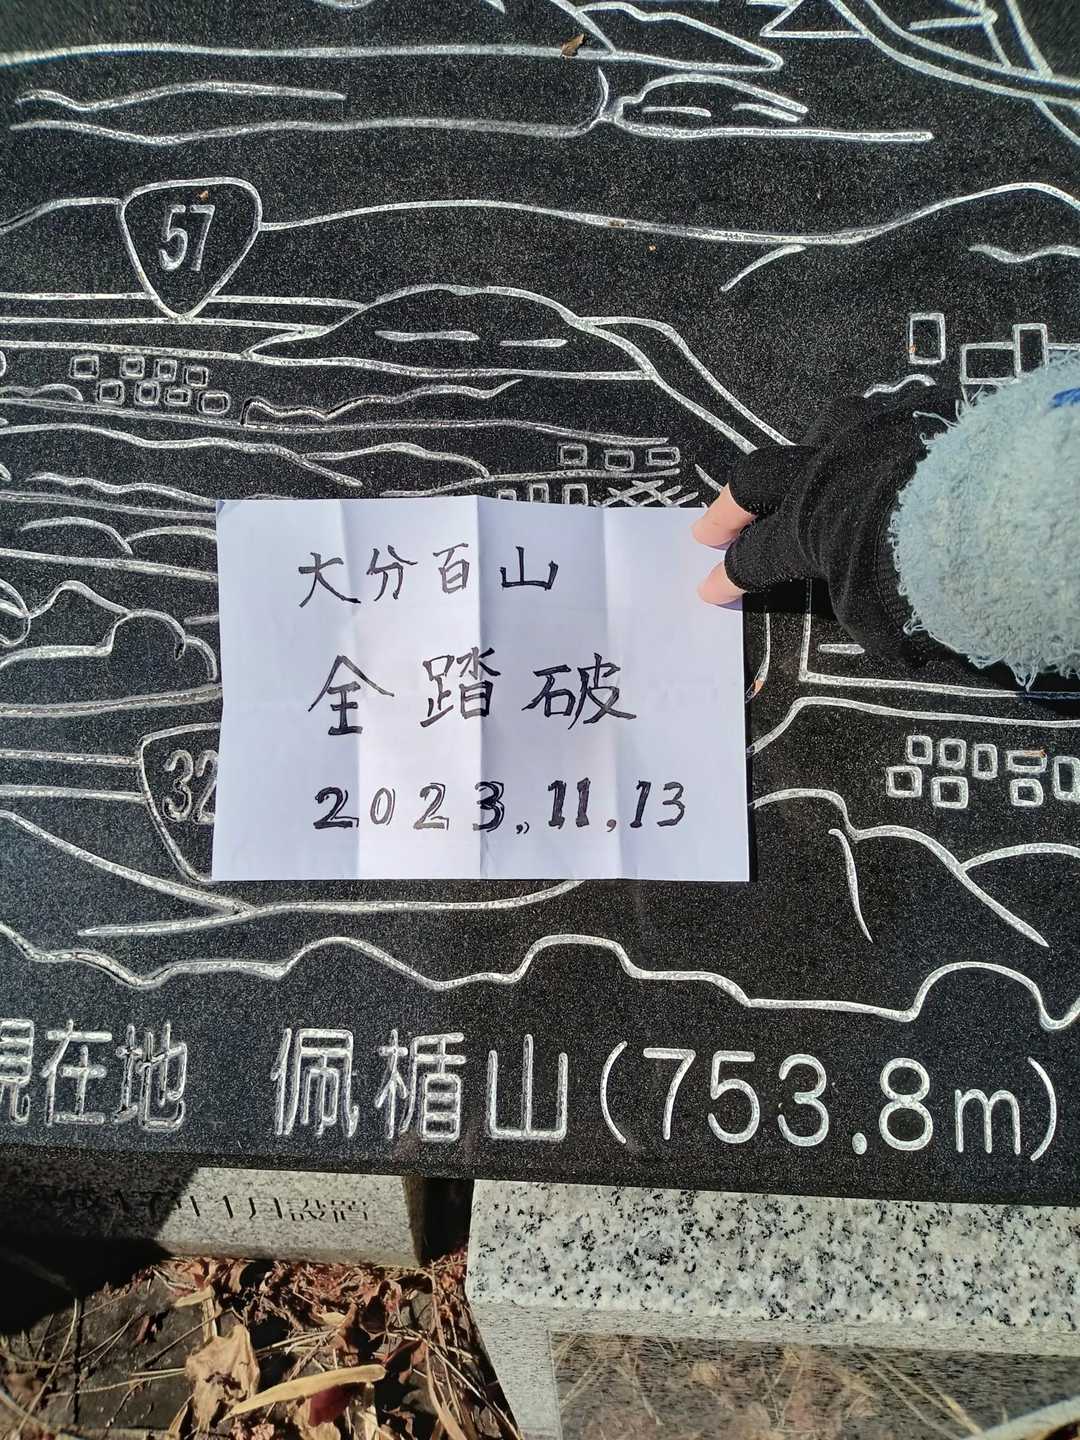 57
大分百山
全踏破
2023.11.13
32
現在地 佩楯山(753.8m)
月設置